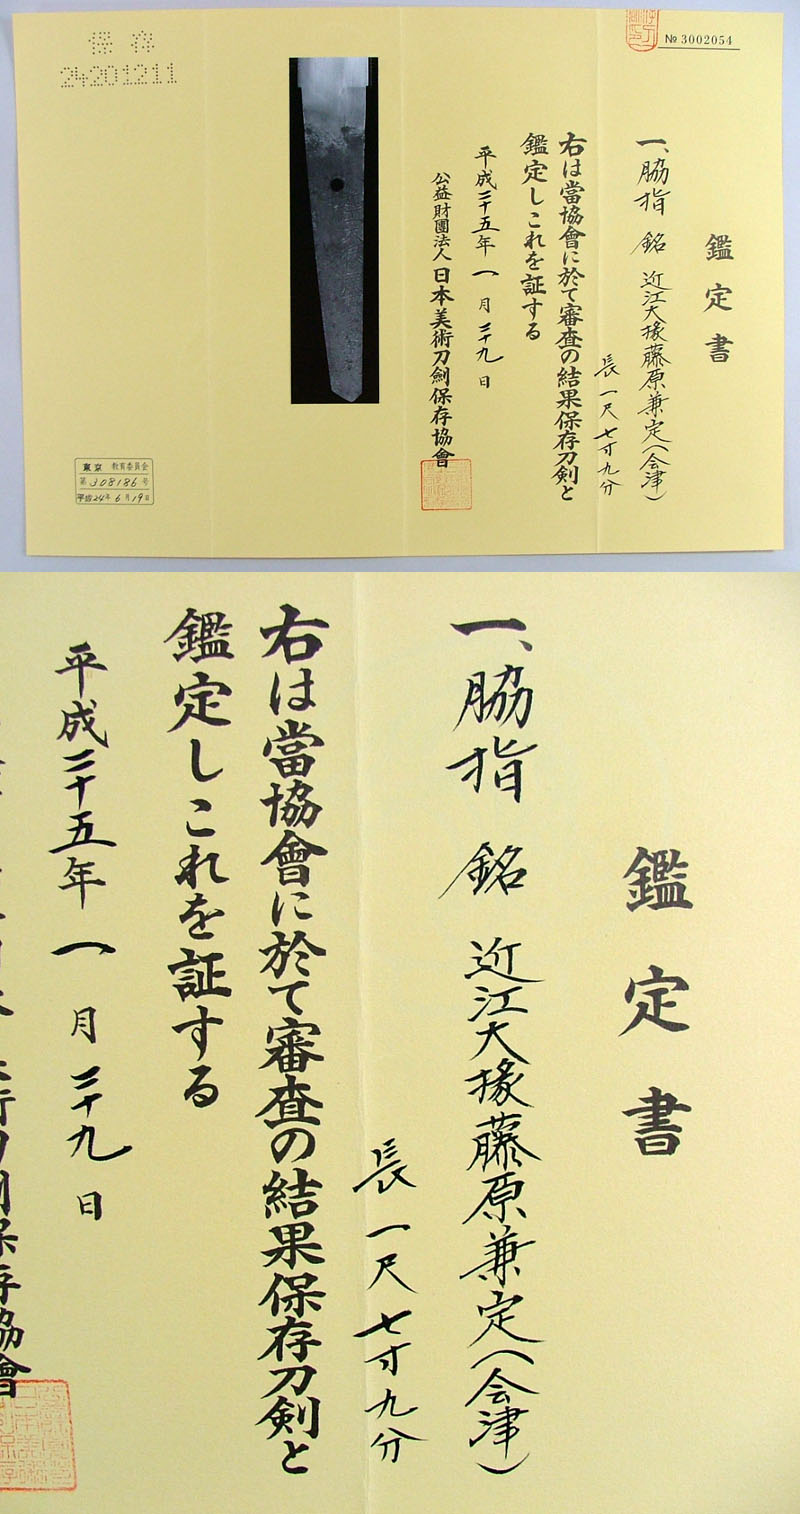 № 3002054
鑑定書
一、脇指 銘 近江大掾藤原兼定(会津)
長一尺七寸九分
右は當協會に於て審査の結果保存刀剣と
鑑定しこれを証する
平成二十五年一月二十九日
公益財團法人 日本美術刀劍保存協會
保存
24201211
東京 教育委員会
第308186号
平成24年6月19日
鑑定書
一、脇指 銘 近江大掾藤原兼定(会津)
長一尺七寸九分
右は當協會に於て審査の結果保存刀剣と
鑑定しこれを証する
平成二十五年一月二十九日